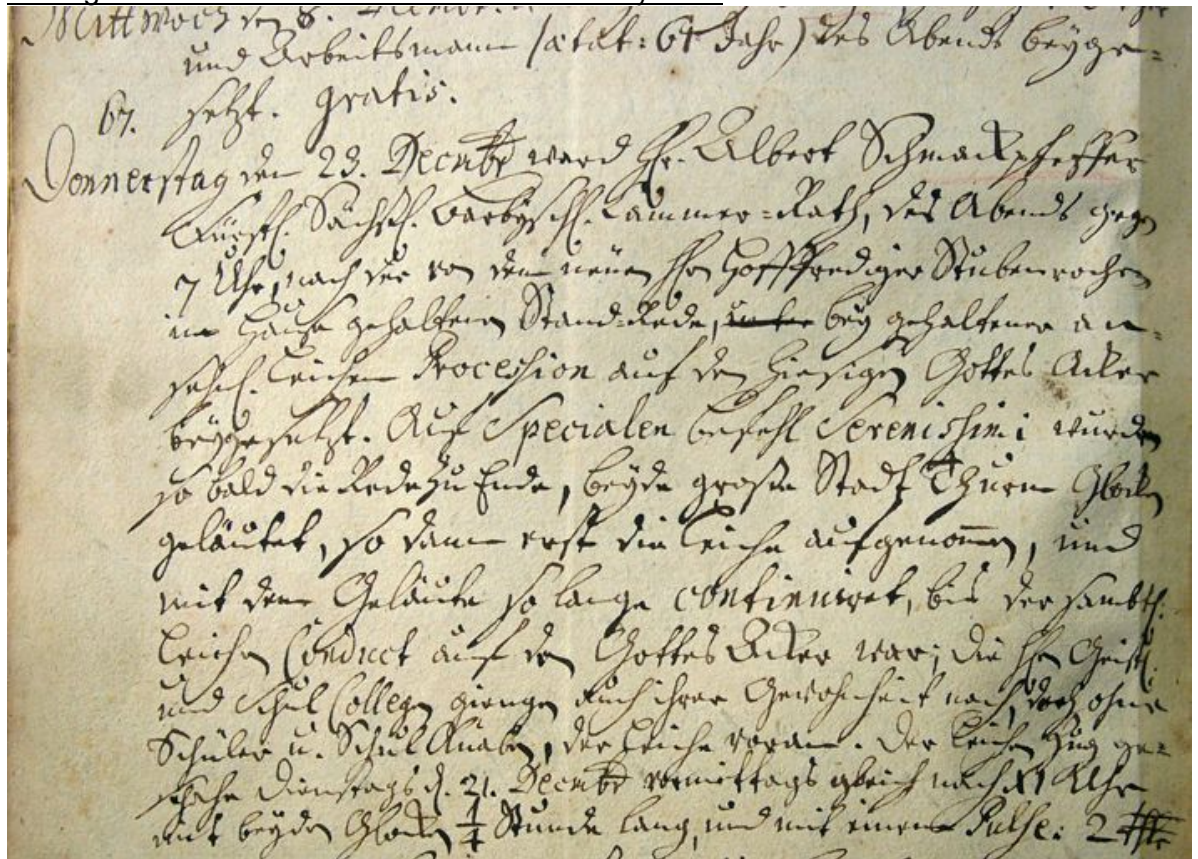 Mittwoch den 8.
und Arbeitsmann (ætat: 64 Jahr) des Abends beyge=
67. setzt. gratis.
Donnerstag den 23. Decembr ward Hr. Albert Schmackpfeffer
Fürstl. Sächsl. Barbÿschl. Cammer=Rath, des Abends gegen
7 Uhr, nach der von dem neüen Hln HoffPrediger Stubenrochen
im Hauße gehaltenen Stand=Rede, bey gehaltener an=
sehnl. Leichen Procession auf den hiesigen Gottes Acker
beygesetzt. Auf Specialen befehl Serenissimi wurden
so bald die Rede zu Ende, beyde große Stadt Thurm Glocken
geläutet, so dann erst die Leiche aufgenom̅en, und
mit dem Geläute so lange continuiret, bis der sambtl.
Leichen Conduct auf den Gottes Acker war; die Hln Geistl.
und Schul Collegen giengen auch ihrer Gewohnheit nach, doch ohne
Schüler u. Schul Knaben, der Leiche voran. Der Leichen Zug ge=
schahe Dienstags d. 21. Decembr vormittags gleich nach 11 Uhr
mit beyden Glocken 1/4 Stunde lang, und mit einem Pulse: 2